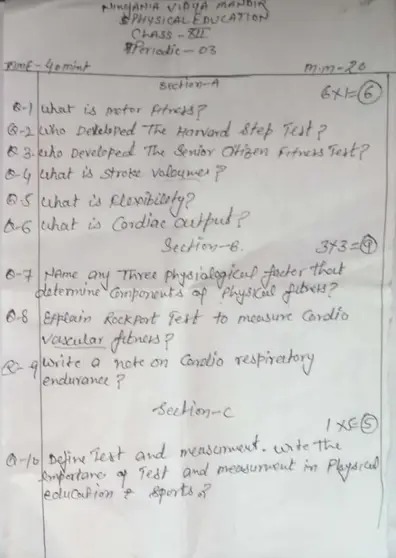 NIKHANIA VIDYA MANDIR
PHYSICAL EDUCATION
CLASS - XII
Periodic - 03
Time - 40 mint M.M - 20
Section-A 6×1=6
Q-1 What is motor fitness?
Q-2 Who Developed The Harvard Step Test?
Q-3. Who Developed The Senior Citizen Fitness Test?
Q-4 What is Stroke Voloume?
Q-5 What is Flexibility?
Q-6 What is Cardiac output?
Section-B. 3×3=9
Q-7 Name any Three physialogical factor that
determine Components of Physical fitness?
Q-8 Explain Rockport Test to measure Cardio
vascular fitness?
Q-9 Write a note on Cardio respiratory
endurance?
Section-C
1×5=5
Q-10 Define Test and measurment. Write the
importance of Test and measurment in Physical
education & sports?